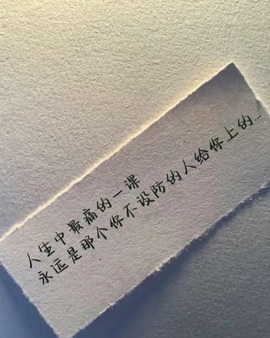 人生中最痛的一课
永远是那个你不设防的人给你上的...